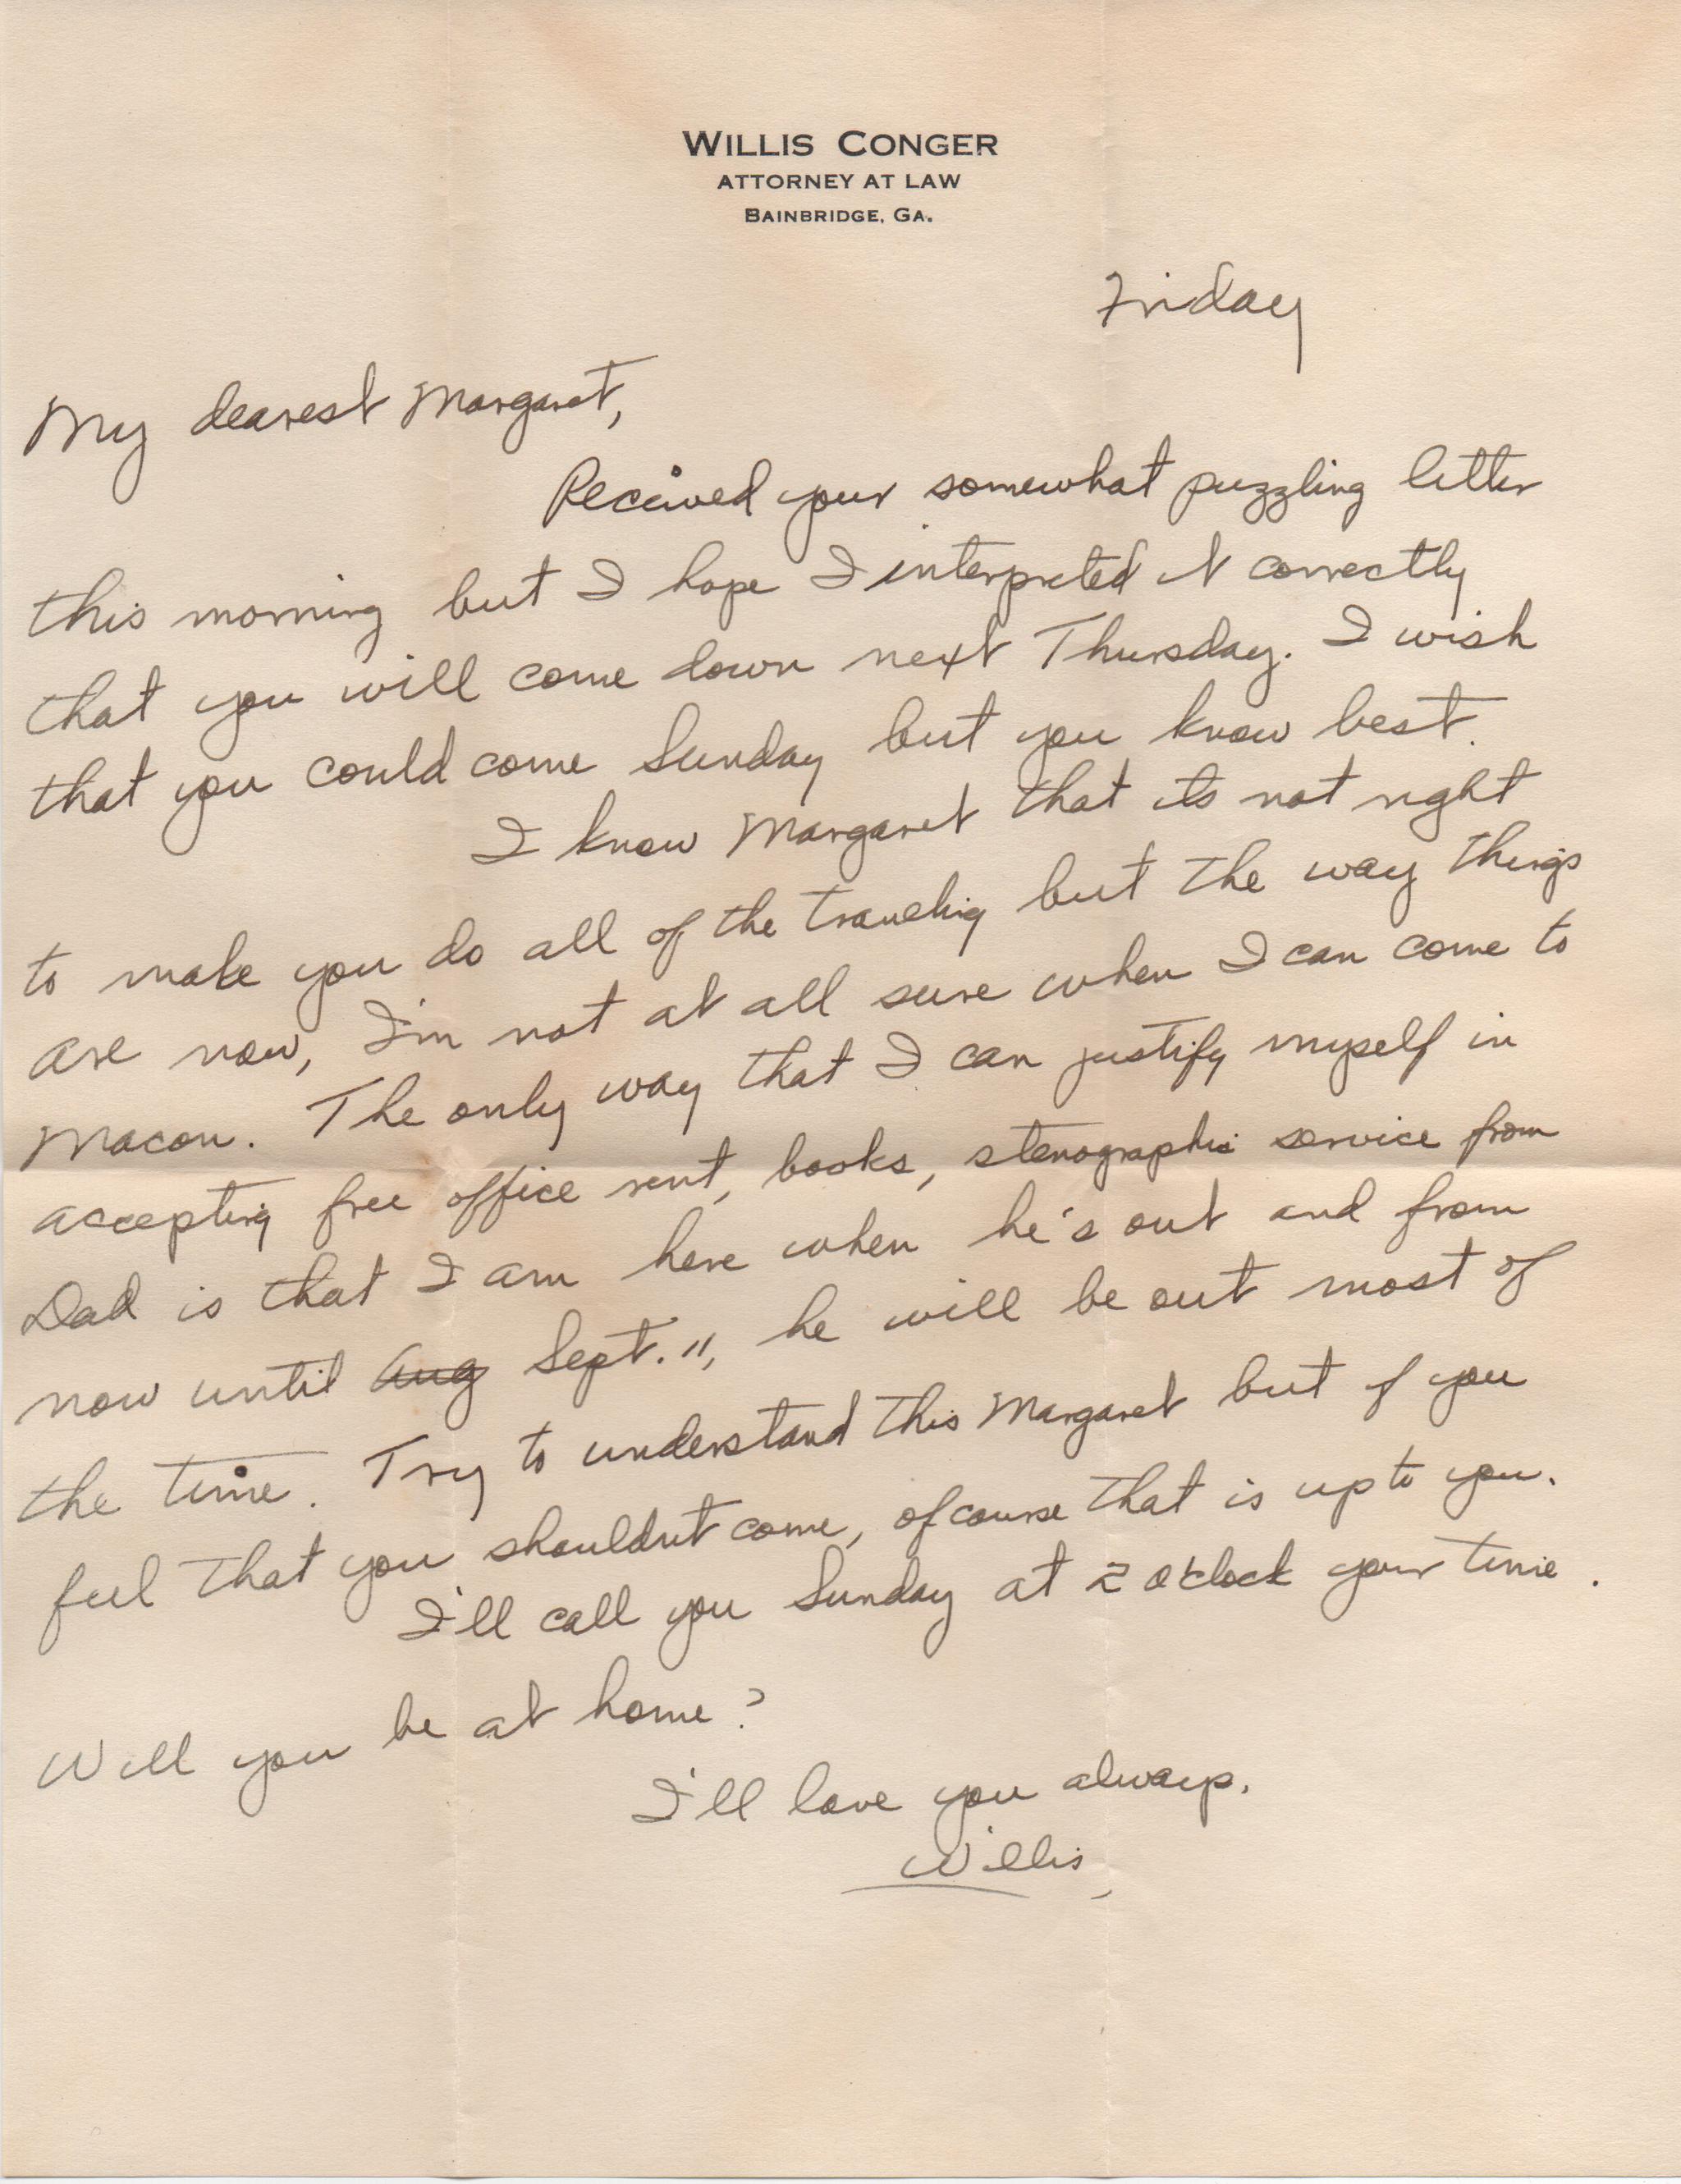 WILLIS CONGER
ATTORNEY AT LAW
BAINBRIDGE, GA.
Friday
My dearest Margaret,
Received your somewhat puzzling letter
this morning but I hope I interpreted it correctly
that you will come down next Thursday. I wish
that you could come Sunday but you know best.
I know Margaret that its not right
to make you do all of the traveling but the way things
are now, I'm not at all sure when I can come to
Macon. The only way that I can justify myself in
accepting free office rent, books, stenographic service from
Dad is that I am here when he's out and from
now until Aug Sept. 11, he will be out most of
the time. Try to understand this Margaret but if you
feel that you shouldn't come, of course that is up to you.
I'll call you Sunday at 2 o'clock your time.
Will you be at home?
I'll love you always.
Willis